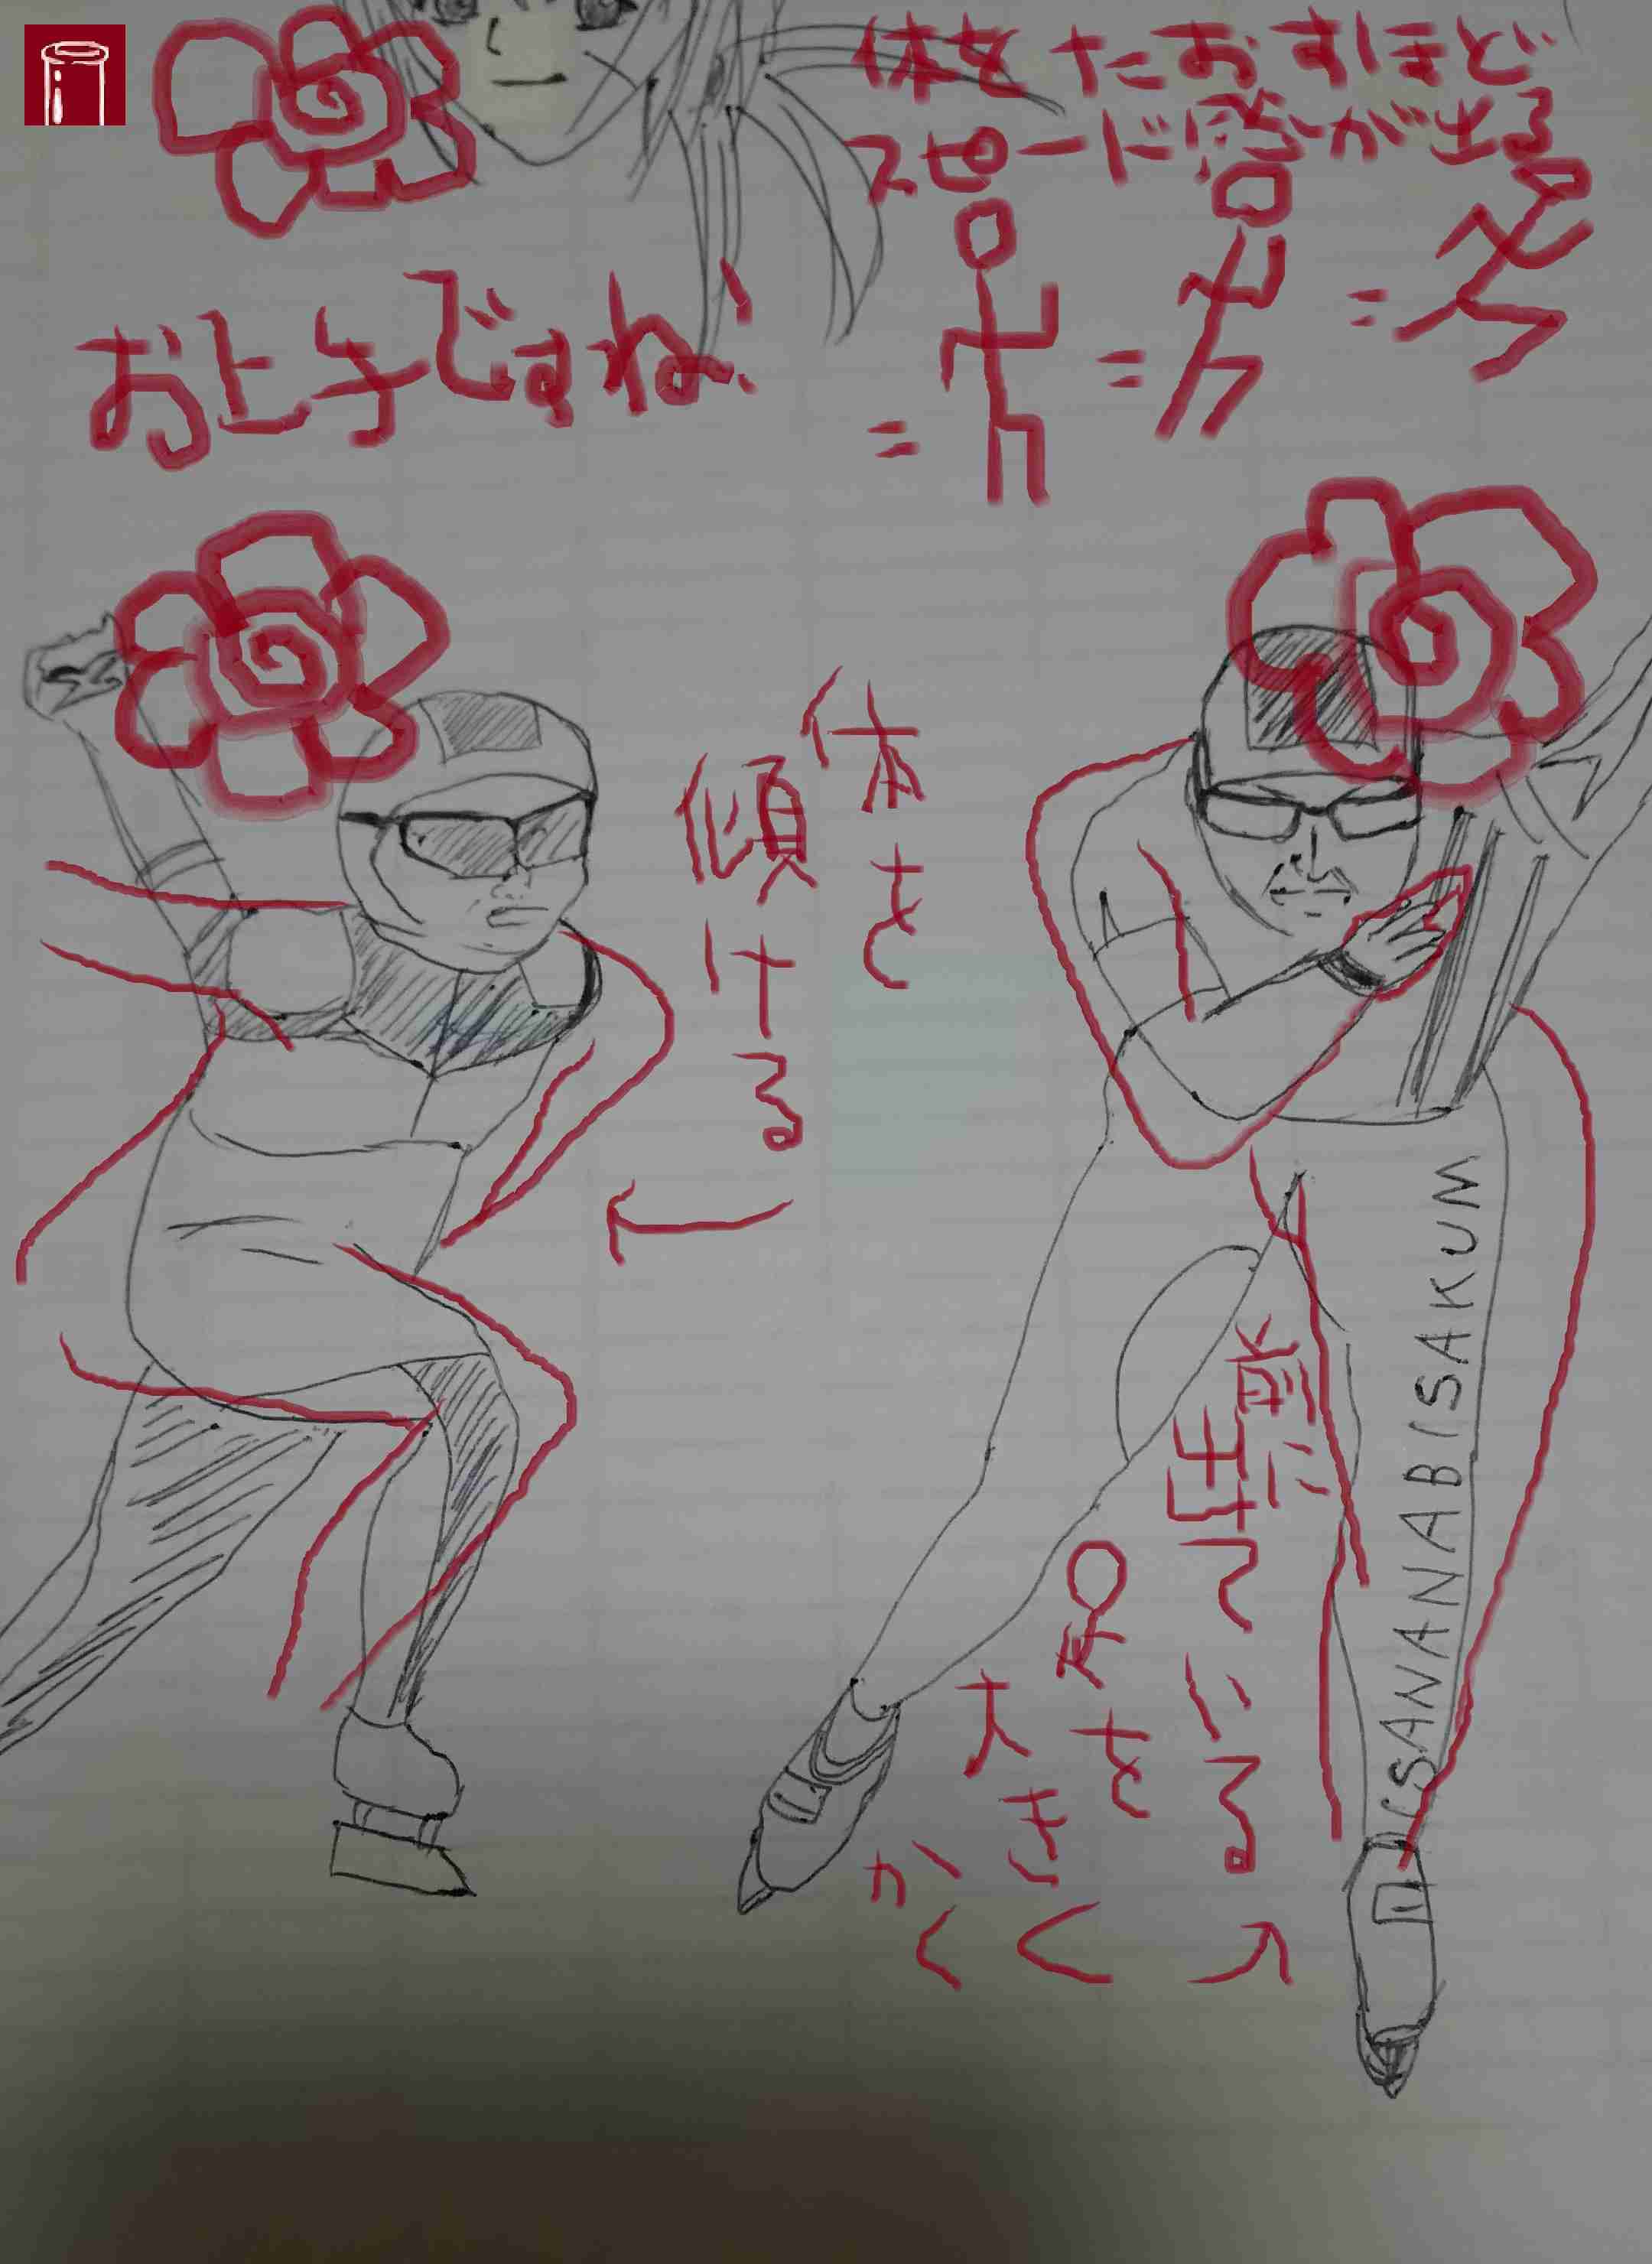 体をたおすほど
スピード感が出る
お上手ですね!
体を
傾ける
前に
出ている
足を
大きく
かく
ISANANABISAKUM